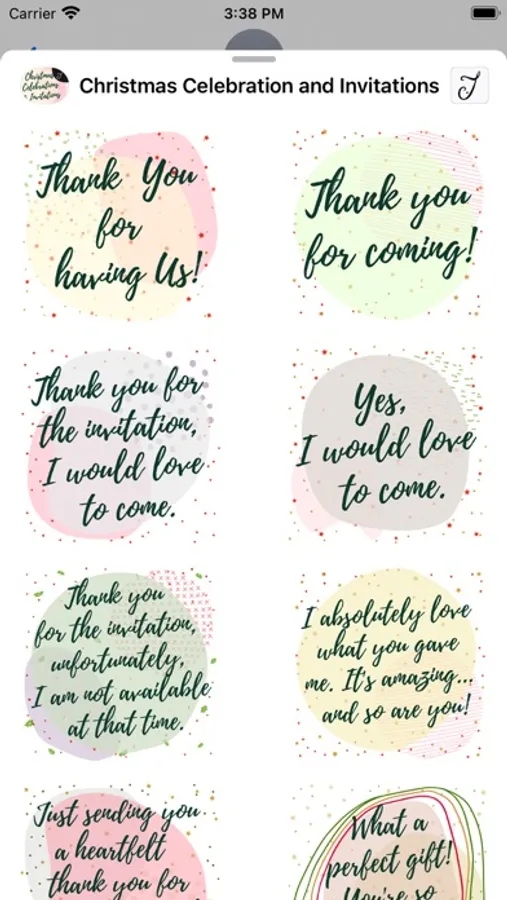 Carrier 3:38 PM
Christmas Celebrations Invitations
Christmas Celebration and Invitations
Thank You
for
having Us!
Thank you
for coming!
Thank you for
the invitation,
I would love
to come.
Yes,
I would love
to come.
Thank you
for the invitation,
unfortunately,
I am not available
at that time.
I absolutely love
what you gave
me. It's amazing...
and so are you!
Just sending you
a heartfelt
thank you for
What a
perfect gift!
You're so